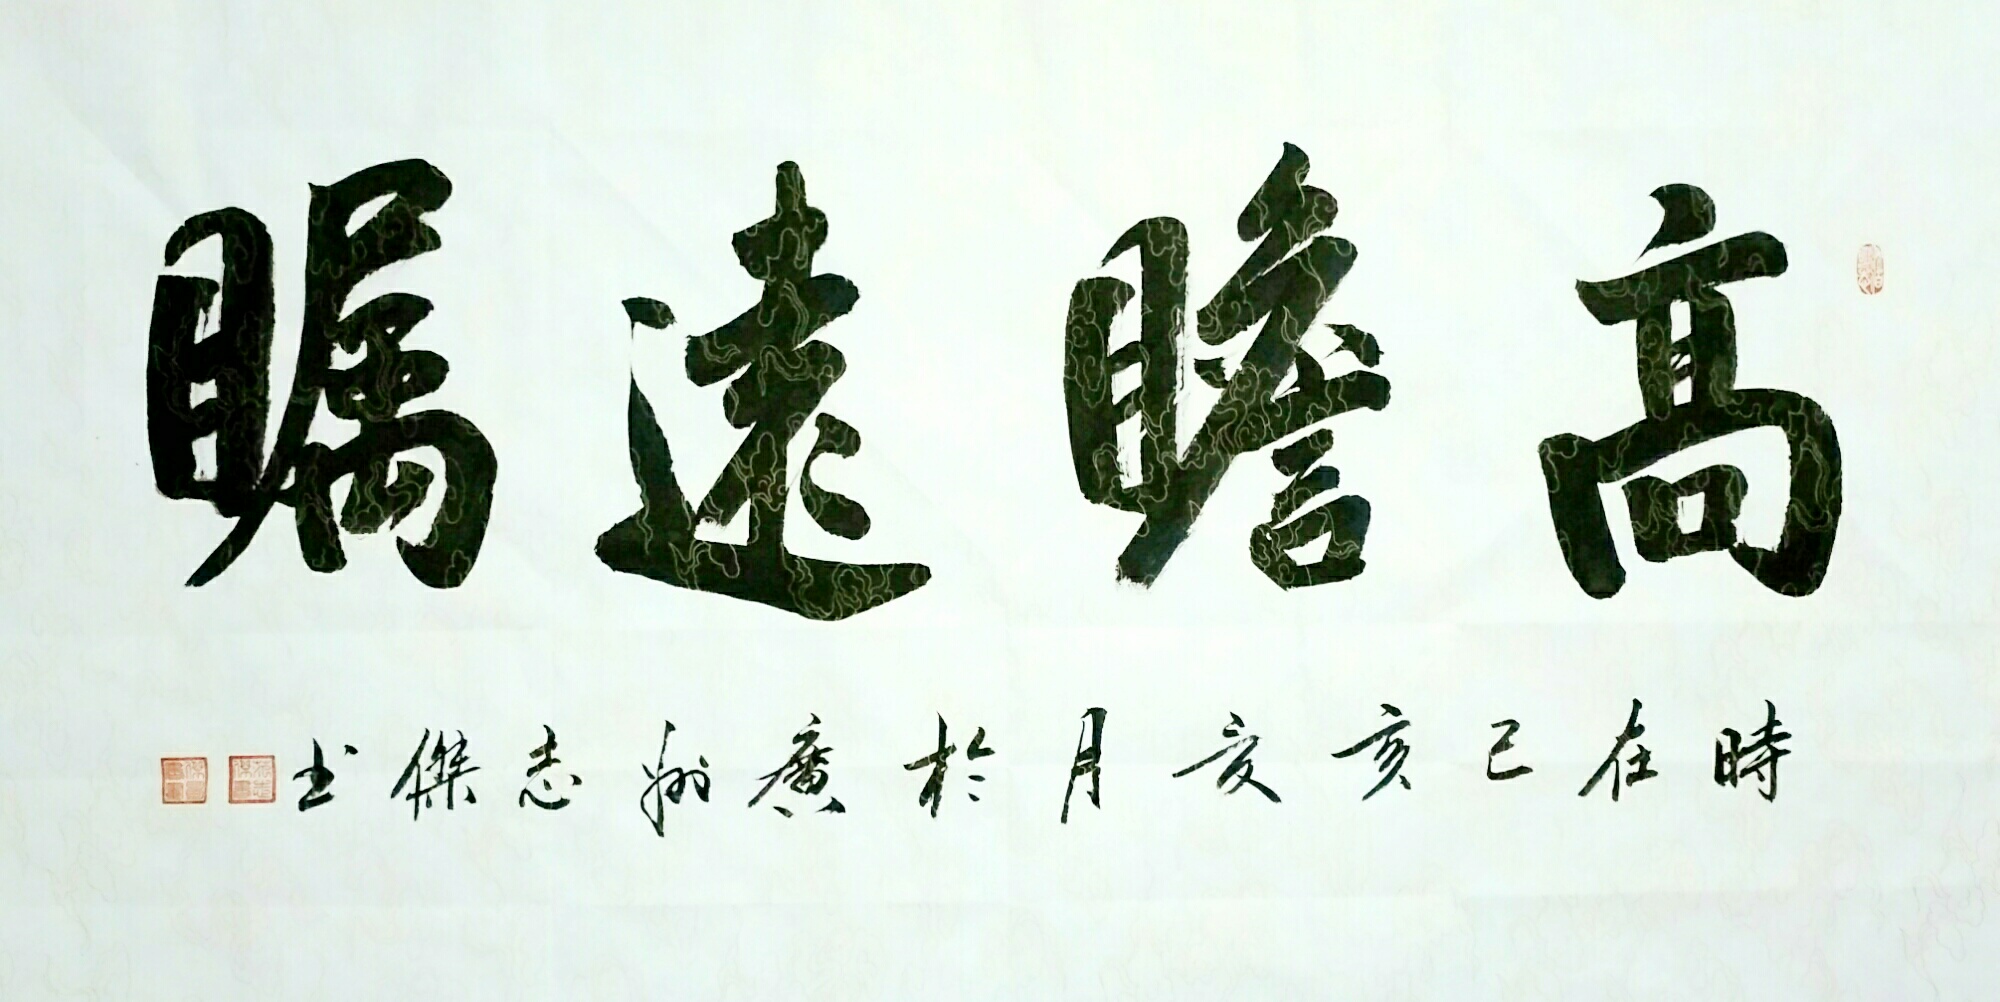 高瞻遠矚
時在己亥亥月於廣州志傑书